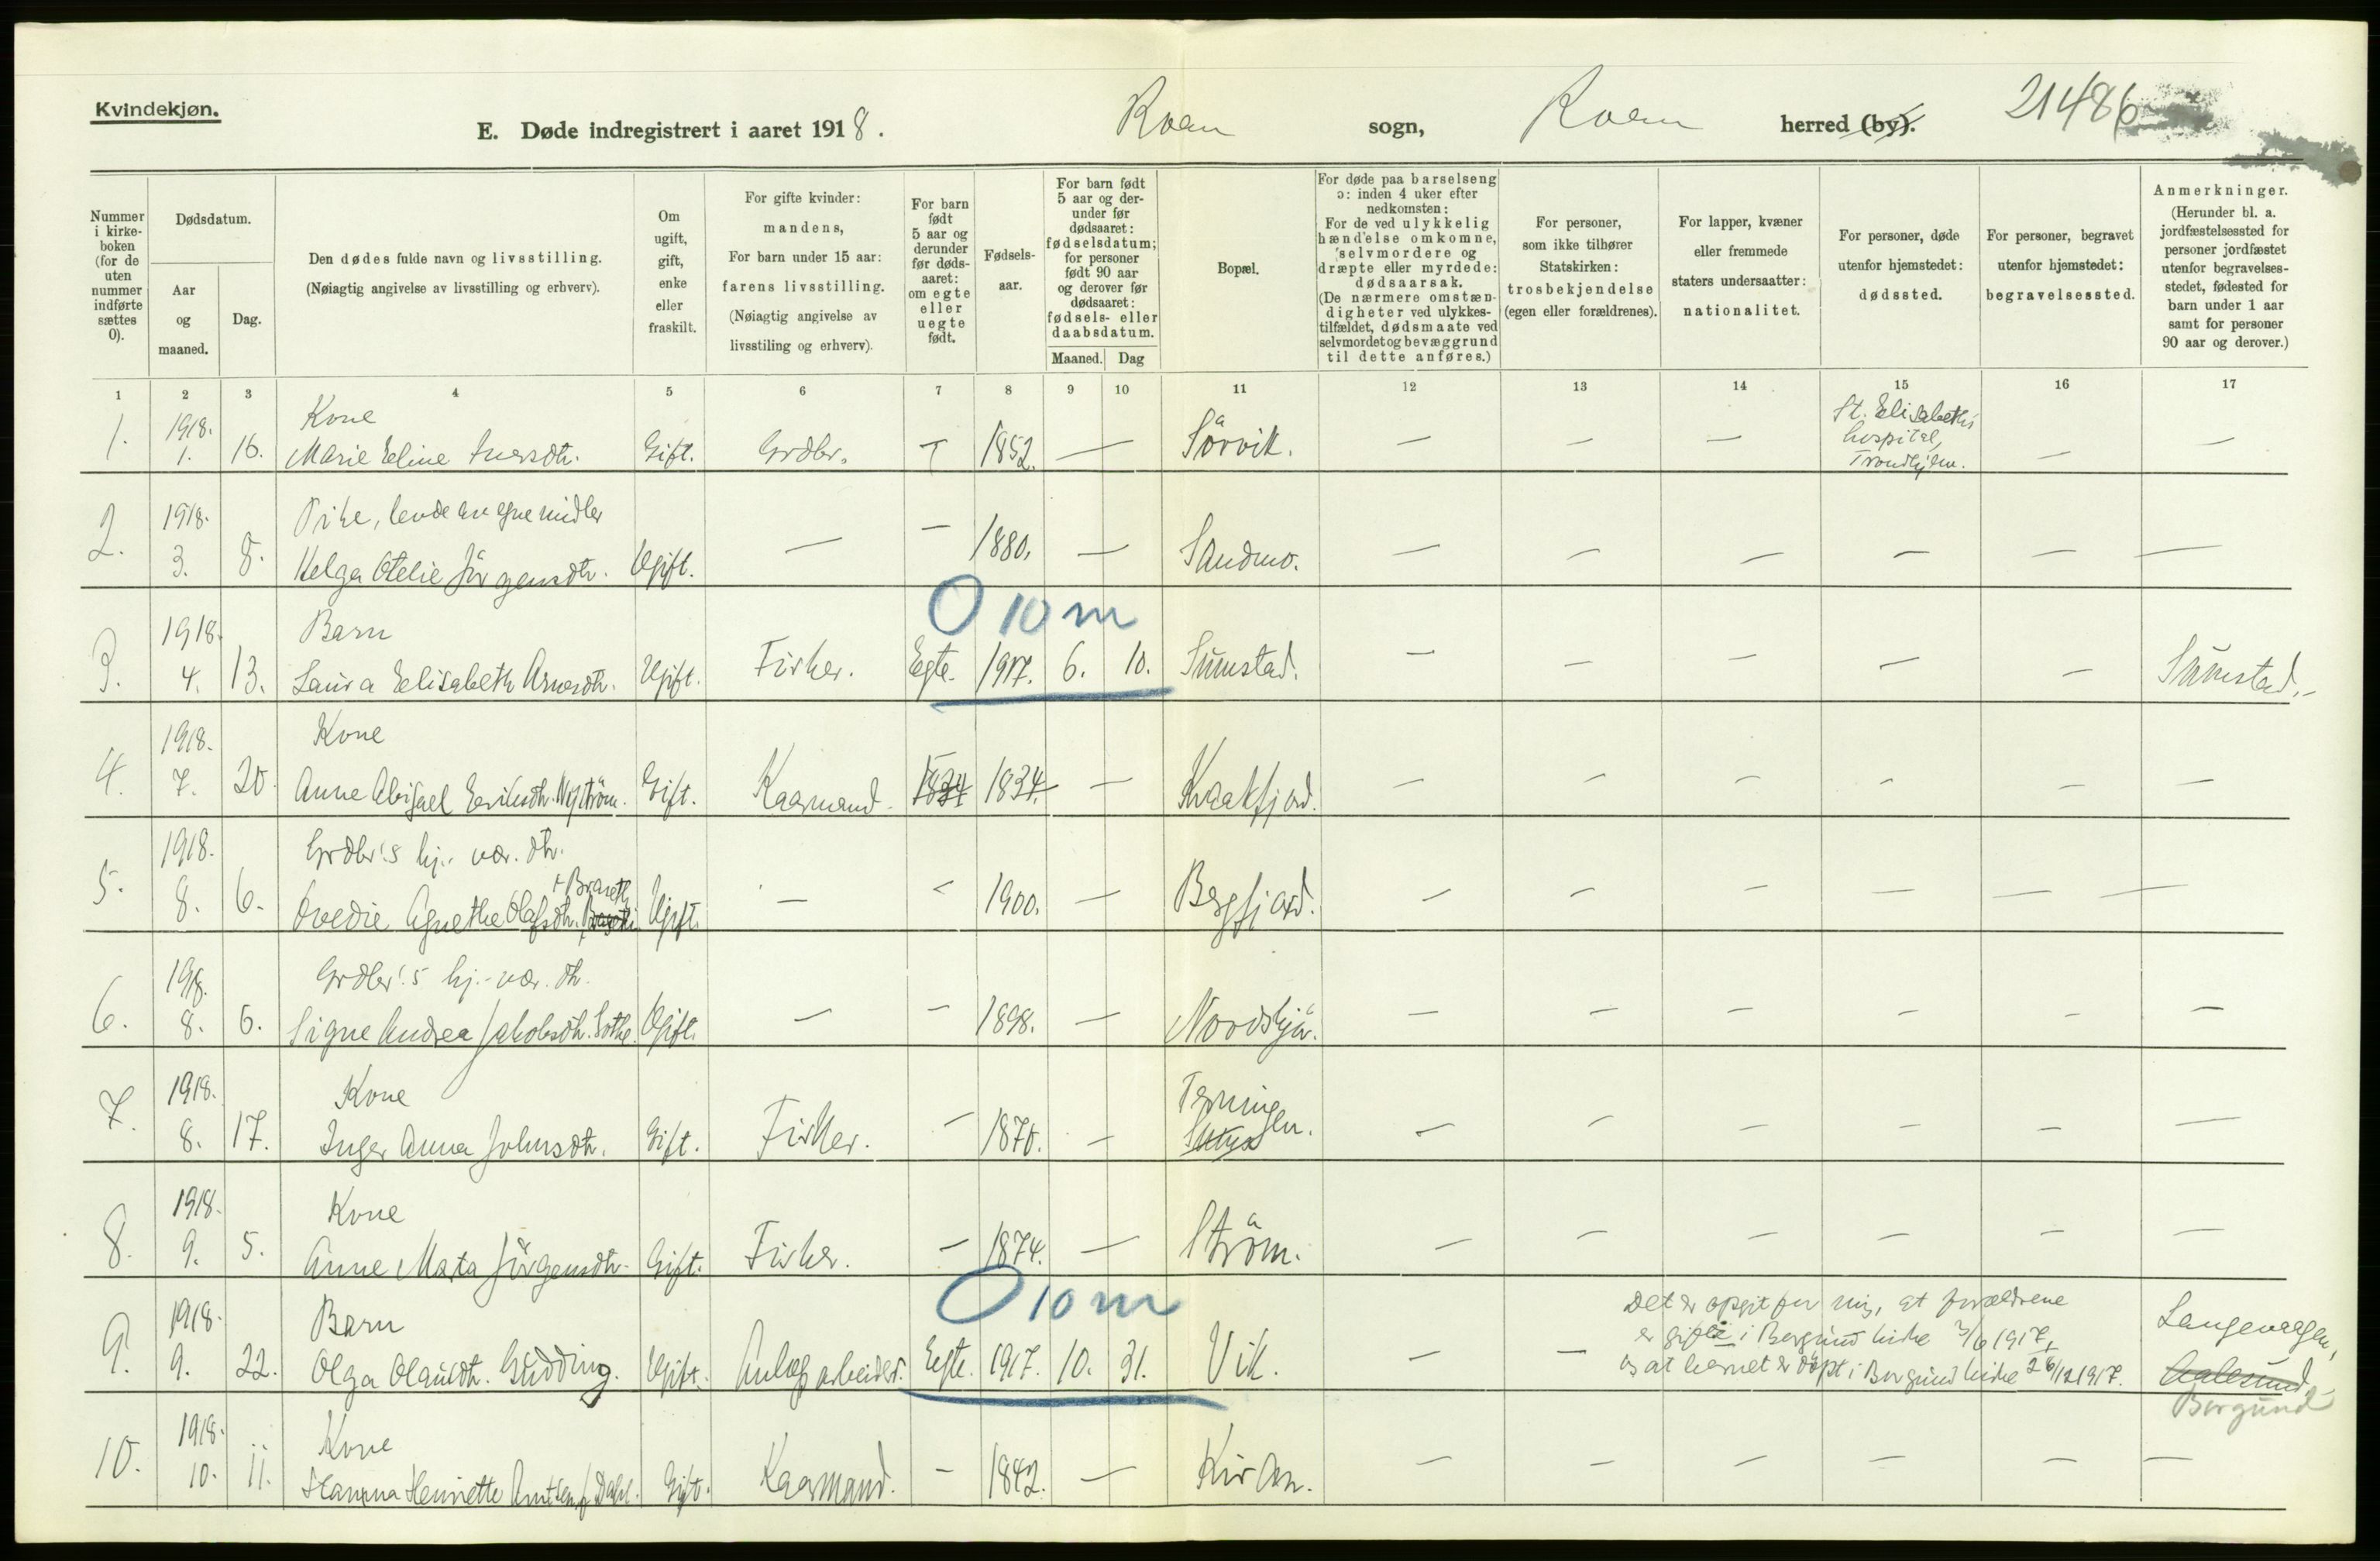 Kvindekjøn.
E. Døde indregistrert i aaret 1918. Roan sogn, Roan herred (by). 21486
Nummer i kirkeboken (for de uten nummer indførte sættes 0).
Dødsdatum.
Aar og maaned.
Dag.
Den dødes fulde navn og livsstilling.
(Nøiagtig angivelse av livsstilling og erhverv).
Om ugift, gift, enke eller fraskilt.
For gifte kvinder: mandens,
For barn under 15 aar: farens livsstilling.
(Nøiagtig angivelse av livsstiling og erhverv).
For barn født 5 aar og derunder før dødsaaret: om egte eller uegte født.
Fødselsaar.
For barn født 5 aar og derunder før dødsaaret: fødselsdatum; for personer født 90 aar og derover før dødsaaret: fødsels- eller daabsdatum.
Maaned. Dag
Bopæl.
For døde paa barselseng ɔ: inden 4 uker efter nedkomsten:
For de ved ulykkelig hændelse omkomne, selvmordere og dræpte eller myrdede: dødsaarsak.
(De nærmere omstændigheter ved ulykkestilfældet, dødsmaate ved selvmordet og bevæggrund til dette anføres.)
For personer, som ikke tilhører Statskirken: trosbekjendelse (egen eller forældrenes).
For lapper, kvæner eller fremmede staters undersaatter: nationalitet.
For personer, døde utenfor hjemstedet: dødssted.
For personer, begravet utenfor hjemstedet: begravelsessted.
Anmerkninger.
(Herunder bl. a. jordfæstelsessted for personer jordfæstet utenfor begravelsesstedet, fødested for barn under 1 aar samt for personer 90 aar og derover.)
1 2 3 4 5 6 7 8 9 10 11 12 13 14 15 16 17
1. 1918. 1. 16. Kone
Marie Eline Iversdtr. Gift. Grdbr. — 1852. — Sörvik. — — — St. Elisabeths
hospital,
Trondhjem. — —
2. 1918. 3. 8. Pike, levde av egne midler
Helga Otelie Jörgensdtr. Ugift. — — 1880. — Sandmo. — — — — — —
O 10 m
3. 1918. 4. 13. Barn
Laura Elisabeth Arnesdtr. Ugift. Fisker. Egte. 1917. 6. 10. Sumstad. — — — — — Sumstad.-
4. 1918. 7. 20. Kone
Anne Abigael Eriksdtr. Nyström. Gift. Kaarmand. 1834 1834. — Kraakfjord. — — — — — —
5. 1918. 8. 6. Grdbr's hj.- vær. dtr.
+ Braseth
Ovedie Agnethe Olafsdtr. Ugift. — — 1900. — Bergfjord. — — — — — —
6. 1918. 8. 6. Grdbr's hj.-vær. dtr.
Signe Andrea Jakobsdtr. Ugift. — — 1898. — Nordskjör. — — — — — —
7. 1918. 8. 17. Kone
Inger Anna Johnsdtr. Gift. Fisker. — 1870. — Terningen. — — — — — —
8. 1918. 9. 5. Kone
Anne Marta Jörgensdtr. Gift. Fisker. — 1874. — Ström. — — — — — —
O 10 m
9. 1918. 9. 22. Barn
Olga Olausdtr. Gudding. Ugift. Anlægsarbeider. Egte. 1917. 10. 31. Vik. — —
Det er opgit for mig, at forældrene
er gifte i Borgund kirke 3/6 1917,
os at barnet er döpt i Borgund kirke 26/12 1917.
Langevaagen,
Aalesund.-
Borgund
10. 1918. 10. 11. Kone
Hanna Henriette Arntsen f. Dahl. Gift. Kaarmand. — 1842. — Kiran. — — — — — —